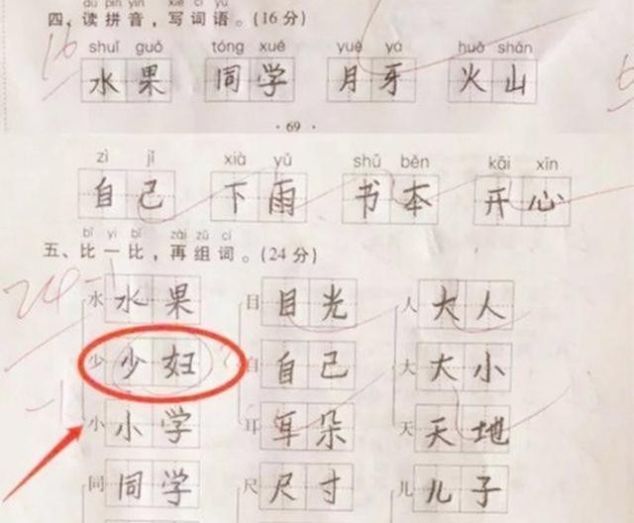 dú pīn yīn xiě cí yǔ
四、读拼音,写词语。(16分)
16
shuǐ guǒ tóng xué yuè yá huǒ shān
水果 同学 月牙 火山
·69·
zì jǐ xià yǔ shū běn kāi xīn
自己 下雨 书本 开心
bǐ yi bǐ zài zǔ cí
五、比一比,再组词。(24分)
水 水果 目 目光 人 大人
少 少妇 自 自己 大 大小
小 小学 耳 耳朵 天 天地
同 同学 尺 尺寸 儿 儿子